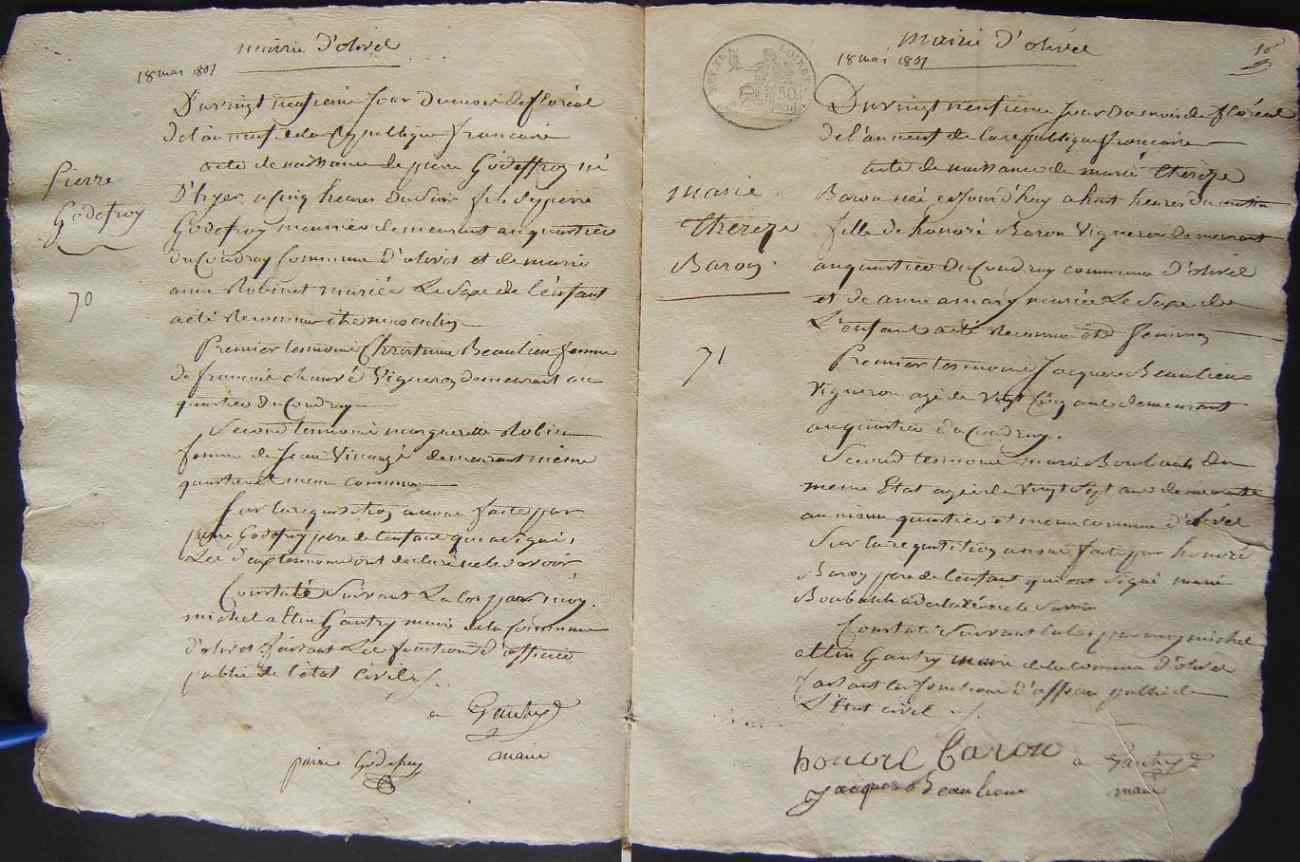 mairie d'olivet
18 mai 1801
Du vingt neufieme Jour du mois de floréal
de l'an neuf de la République francaise
acte de naissance de pierre Godeffroy né
D'hyer a cinq heures du Soir fils de pierre
Godefroy meunier demeurant au quartier
du Coudray Commune d'olivet et de marie
anne Robinet mariée Le Sexe de L'enfant
a été Reconnu etre masculin
Pierre
Godefroy
70
Premier temoins Christinne Beaulieu femme
de francois chauvé Vigneron demeurant au
quartier du Coudray
Second temoins marguerite Robin
femme de Jean demeurant même
quartier et meme commune
Sur la requisition a nous faite par
pierre Godefroy pere de l'enfant qui a signé,
Les deux temoins ont declaré ne le savoir
Constaté Suivant La loi par moy
michel Gautry maire de la Commune
d'olivet faisant Les fonctions d'officier
public de l'état civil
a Gautry
maire
pierre Godefroy
mairie d'olivet
18 mai 1801
10
LOIRET
Du vingt neufieme Jour du mois de floréal
de l'an neuf de la republique francaise
acte de naissance de marie thereze
Baron née ce Jourd'huy a huit heures du matin
fille de honoré Baron Vigneron demeurant
au quartier du Coudray commune d'olivet
et de anne amary mariée Le Sexe de
L'enfant a été Reconnu etre feminin
marie
thereze
Baron
71
Premier temoins Jacques Beaulieu
Vigneron agé de Vingt Cinq ans demeurant
au quartier du Coudray.
Second temoins marie du
meme Etat agée de Vingt Sept ans demeurante
au meme quartier et meme commune d'olivet
Sur la requisition a nous faite par honoré
Baron pere de l'enfant qui ont signé marie
a declaré ne le Savoir
Constaté Suivant la loi par moy michel
Gautry maire de la commune d'olivet
faisant les fonctions d'officier public de
L'Etat civil
honoré baron
a Gautry
jacques Beaulieu
maire